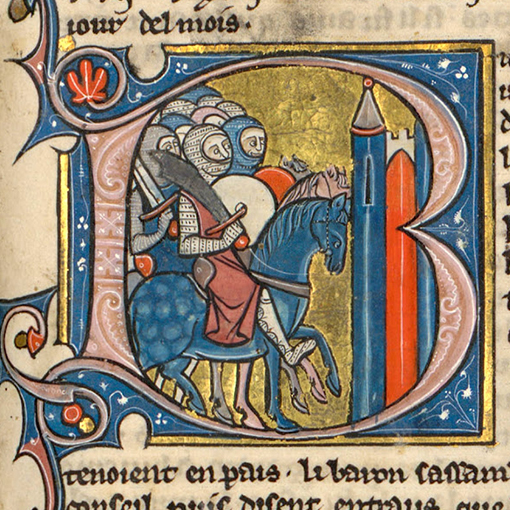 iour del mois.
tenoient en pais · li baron sassam
conseil puis disent entraus que